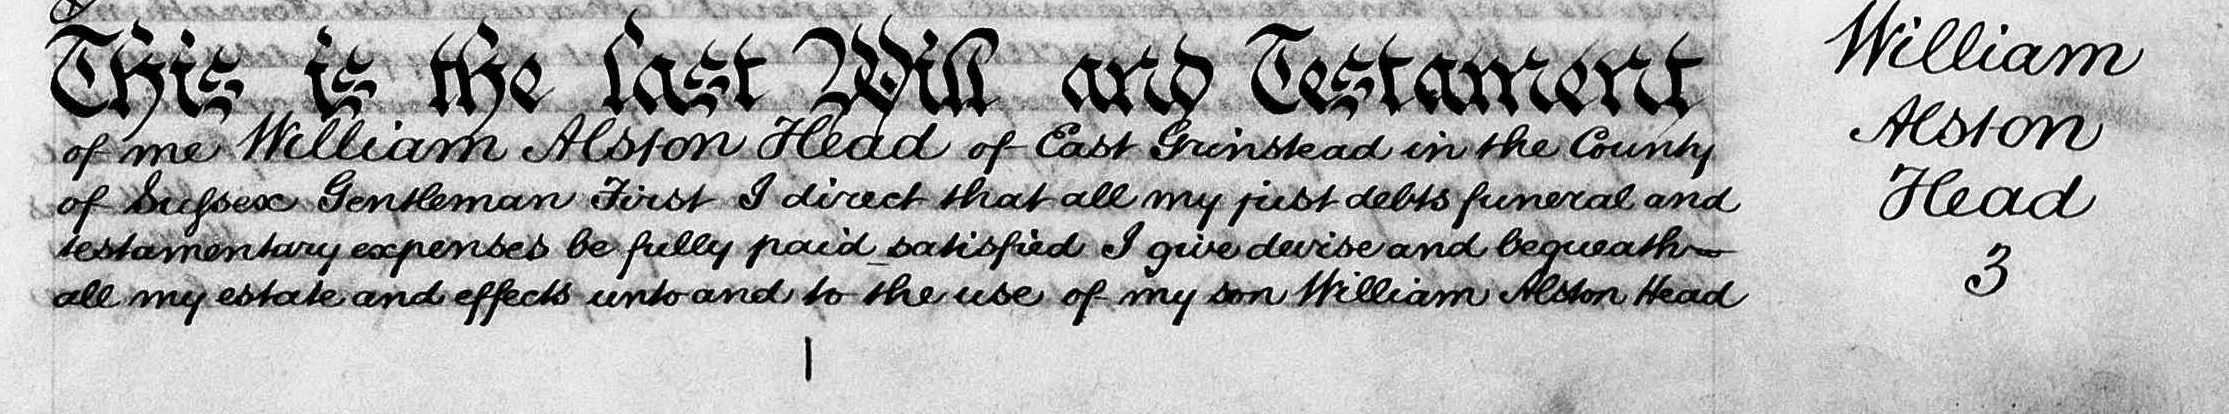 This is the last Will and Testament
of me William Alston Head of East Grinstead in the County
of Sussex Gentleman First I direct that all my just debts funeral and
testamentary expenses be fully paid satisfied I give devise and bequeath
all my estate and effects unto and to the use of my son William Alston Head
William
Alston
Head
3